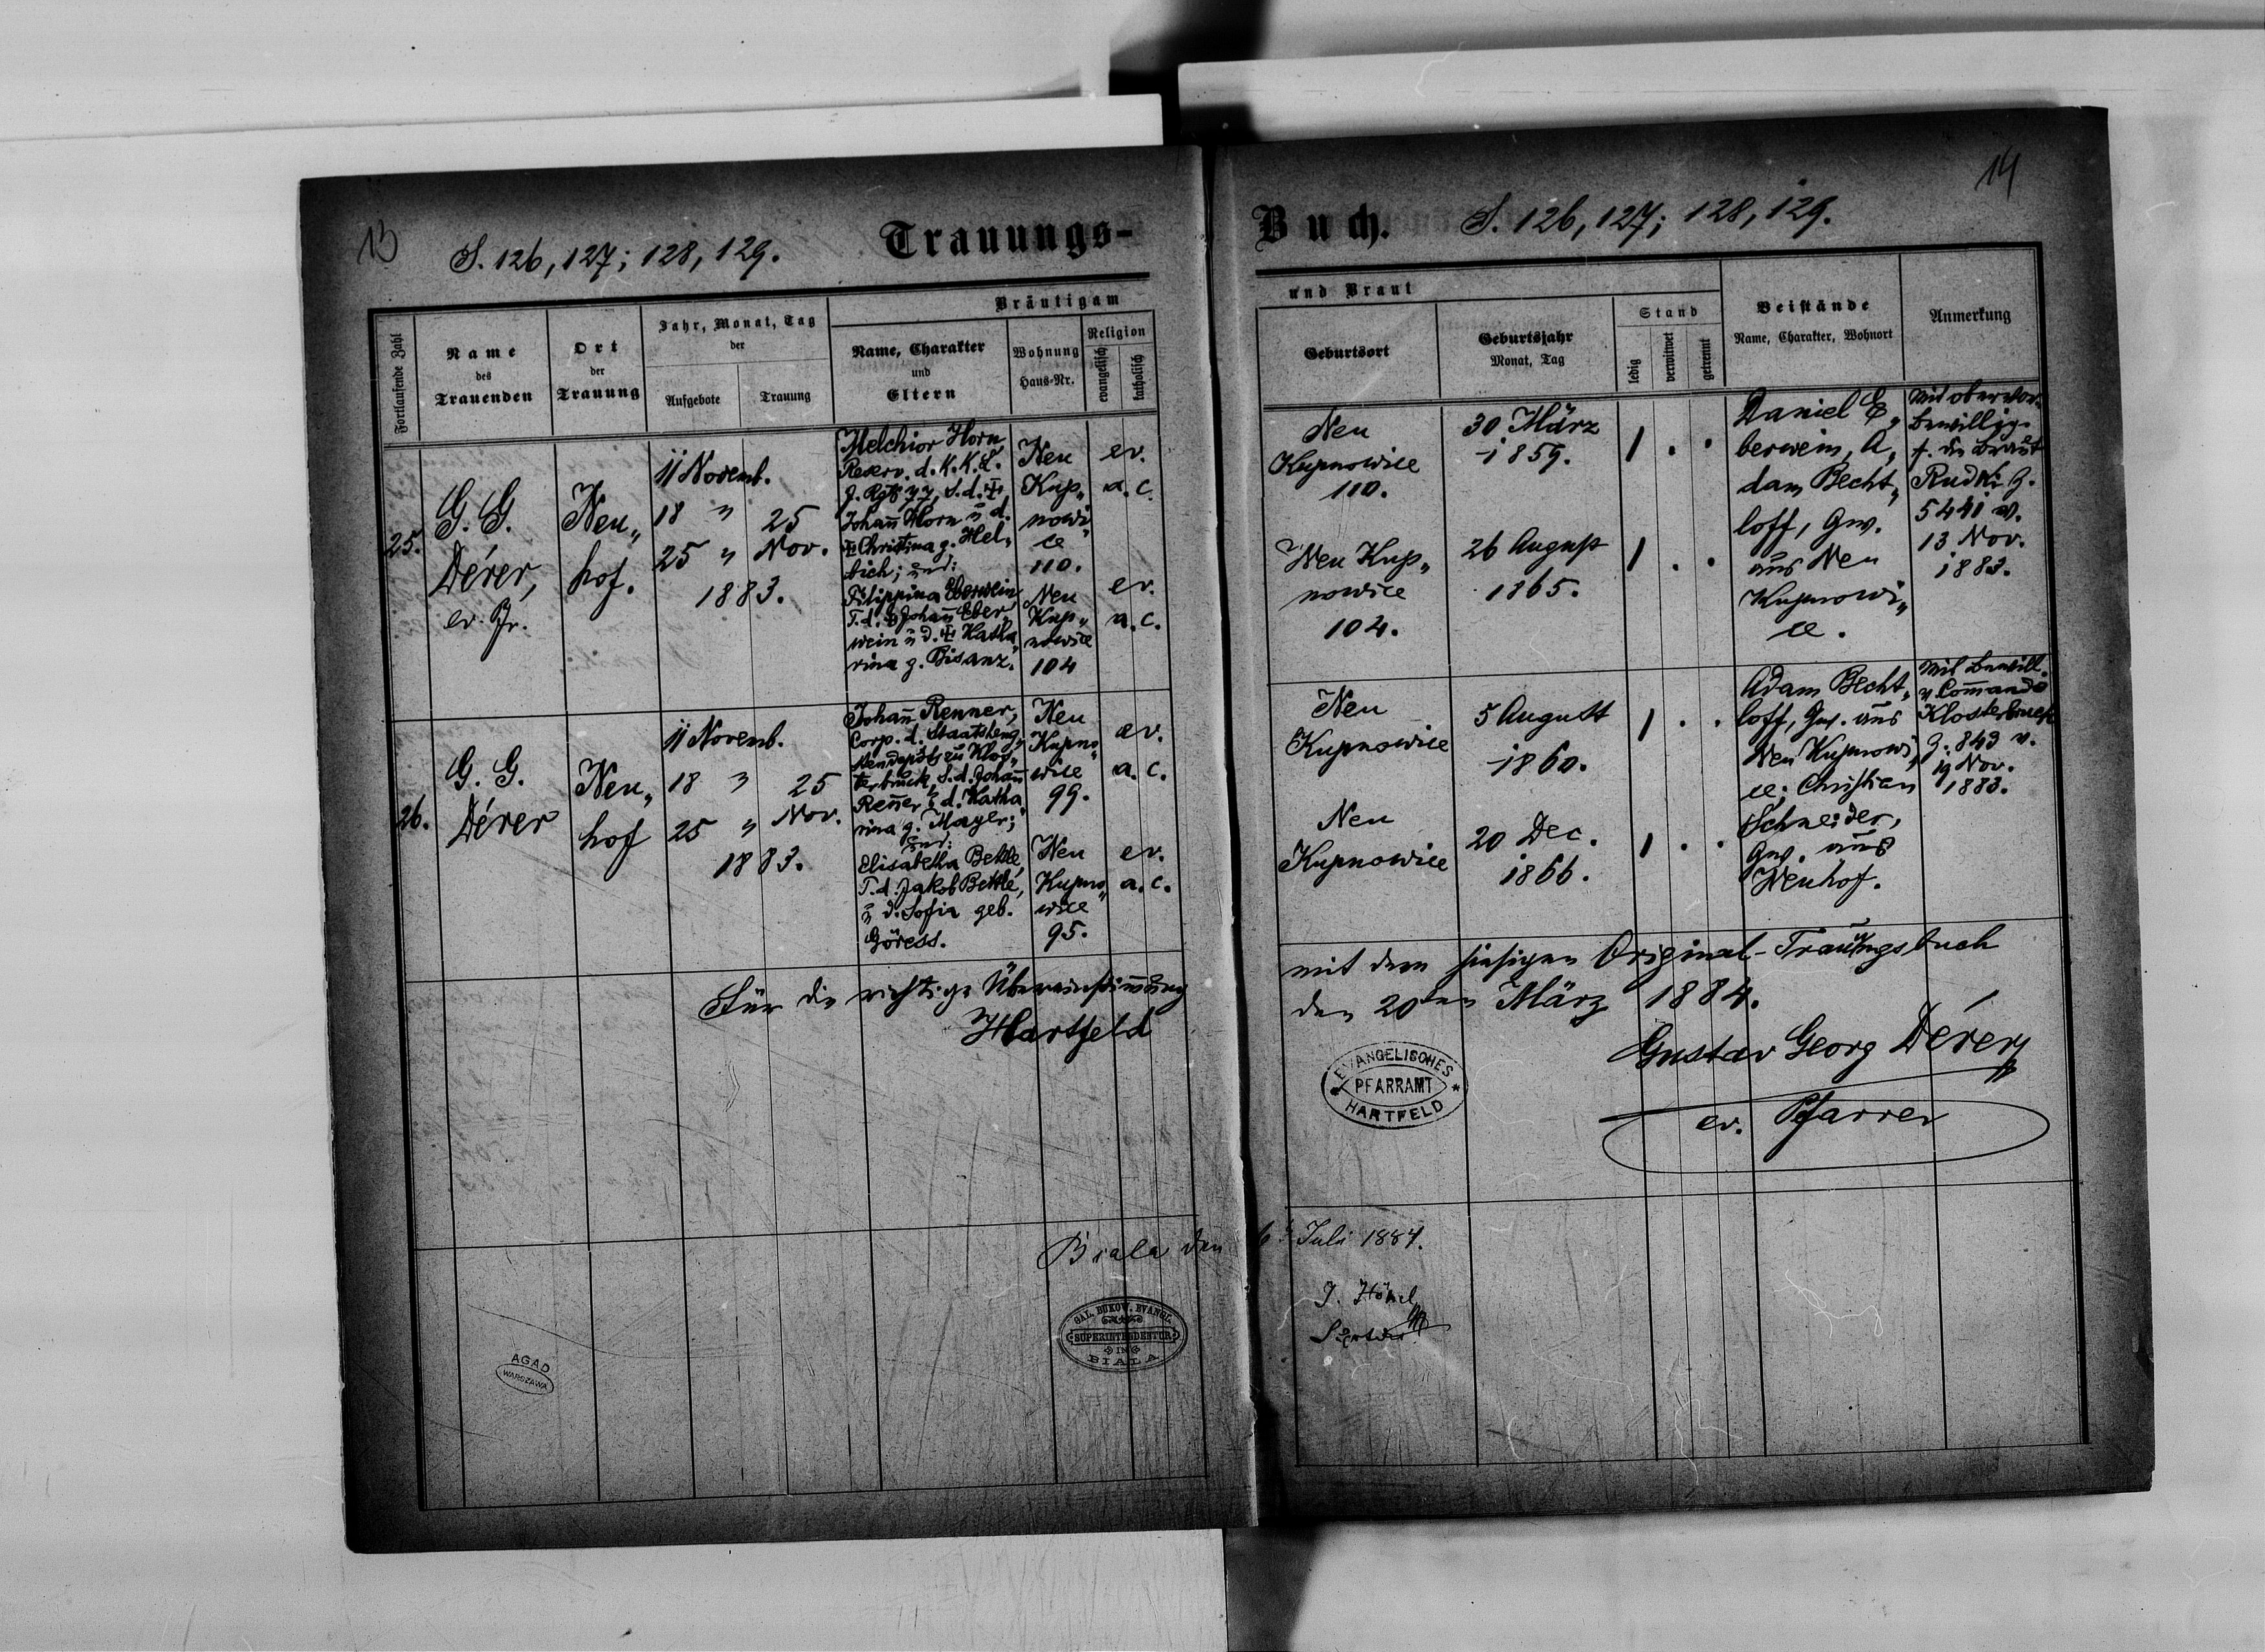 13
S. 126, 127; 128, 129.
Trauungs-
Fortlaufende Zahl
Name
des
Trauenden
Ort
der
Trauung
Jahr, Monat, Tag
der
Aufgebote
Trauung
Bräutigam
Name, Charakter
und
Eltern
Wohnung
Haus-Nr.
Religion
evangelisch
katholisch
25.
G. G.
Dérer,
ev. Pfr.
Neu„
hof.
11 Novemb.
18 "
25 "
1883.
25
Nov.
Melchior Horn
Reserv. d. K. K. L.
J. Rgts 77, S. d. ‡
Johañ Horn u d.
‡ Christina g. Hel„
bich; und:
Filippina Eberwein
T. d. ‡ Johañ Eber„
wein u d. ‡ Katha„
rina g. Bisanz.
Neu
Kup„
nowi„
ce
110.
Neu
Kup„
nowice
104
ev.
a. c.
ev.
a. c.
26.
G. G.
Dérer
Neu„
hof
11 Novemb.
18 "
25 "
1883.
25
Nov.
Johañ Renner,
Corp. d. Staatsheng„
stendepôts zu Klos„
terbruck, S. d. Johañ
Reñer u d. Katha„
rina g. Mayer;
und:
Elisabetha Bettle,
T. d. Jakob Bettle,
u d. Sofia geb.
Göress.
Neu
Kupno„
wice
99.
Neu
Kupno„
wice
95.
ev.
a. c.
ev.
a. c.
Für die richtige Übereinstim̄ung
Hartfeld
Biala den
GAL. BUKOW. EVANGL.
SUPERINTENDENTUR
IN
BIALA
AGAD
WARSZAWA
14
Buch.
S. 126, 127; 128, 129.
und Braut
Geburtsort
Geburtsjahr
Monat, Tag
Stand
ledig
verwitwet
getrennt
Beistände
Name, Charakter, Wohnort
Anmerkung
Neu
Kupnowice
110.
30 März
1859.
1 . .
Neu Kup„
nowice
104.
26 August
1865.
1 . .
Daniel E„
berwein, A„
dam Becht„
loff, Gw.
aus Neu
Kupnowi„
ce.
Mit obervor.
Bewillig.
f. die Braut
Rudki Z.
5441 v.
13 Nov.
1883.
Neu
Kupnowice
5 August
1860.
1 . .
Neu
Kupnowice
20 Dec.
1866.
1 . .
Adam Becht„
loff, Gw. aus
Neu Kupnowi„
ce; Christian
Schneider,
Gw. aus
Neuhof.
Mit Bewill.
v Com̄ando
Klosterbruck
Z. 843 v.
19 Nov.
1883.
mit dem hiesigen Original-Trauungsbuch
den 20ten März 1884.
Gustav Georg Dérer
ev. Pfarrer
EVANGELISCHES
PFARRAMT
HARTFELD
6 Juli 1884.
J. Hönel